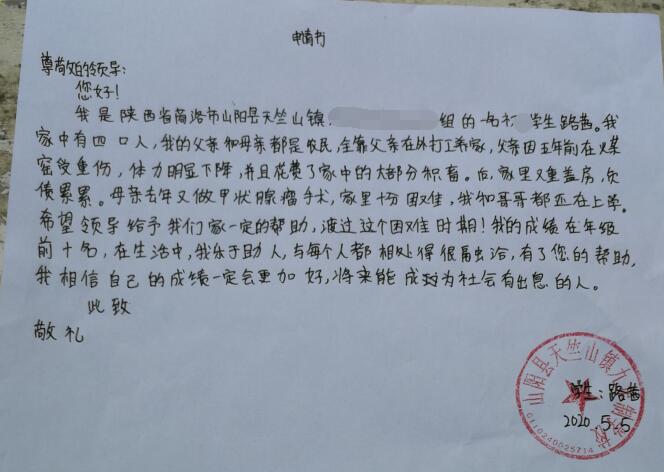 申请书
尊敬的领导：
您好！
我是陕西省商洛市山阳县天竺山镇 组的一名 学生路茜。我
家中有四口人，我的父亲和母亲都是农民，全靠父亲在外打工养家，父亲因五年前在煤
窑受重伤，体力明显下降，并且花费了家中的大部分积蓄。后，家里又重盖房，负
债累累。母亲去年又做甲状腺瘤手术，家里十分困难，我和哥哥都还在上学。
希望领导给予我们家一定的帮助，渡过这个困难时期！我的成绩在年级
前十名，在生活中，我乐于助人，与每个人都相处得很融洽，有了您的帮助，
我相信自己的成绩一定会更加好，将来能成为对社会有出息的人。
此致
敬礼
学生：路茜
2020 5.5
山阳县天竺山镇九年制学校
0110240025714